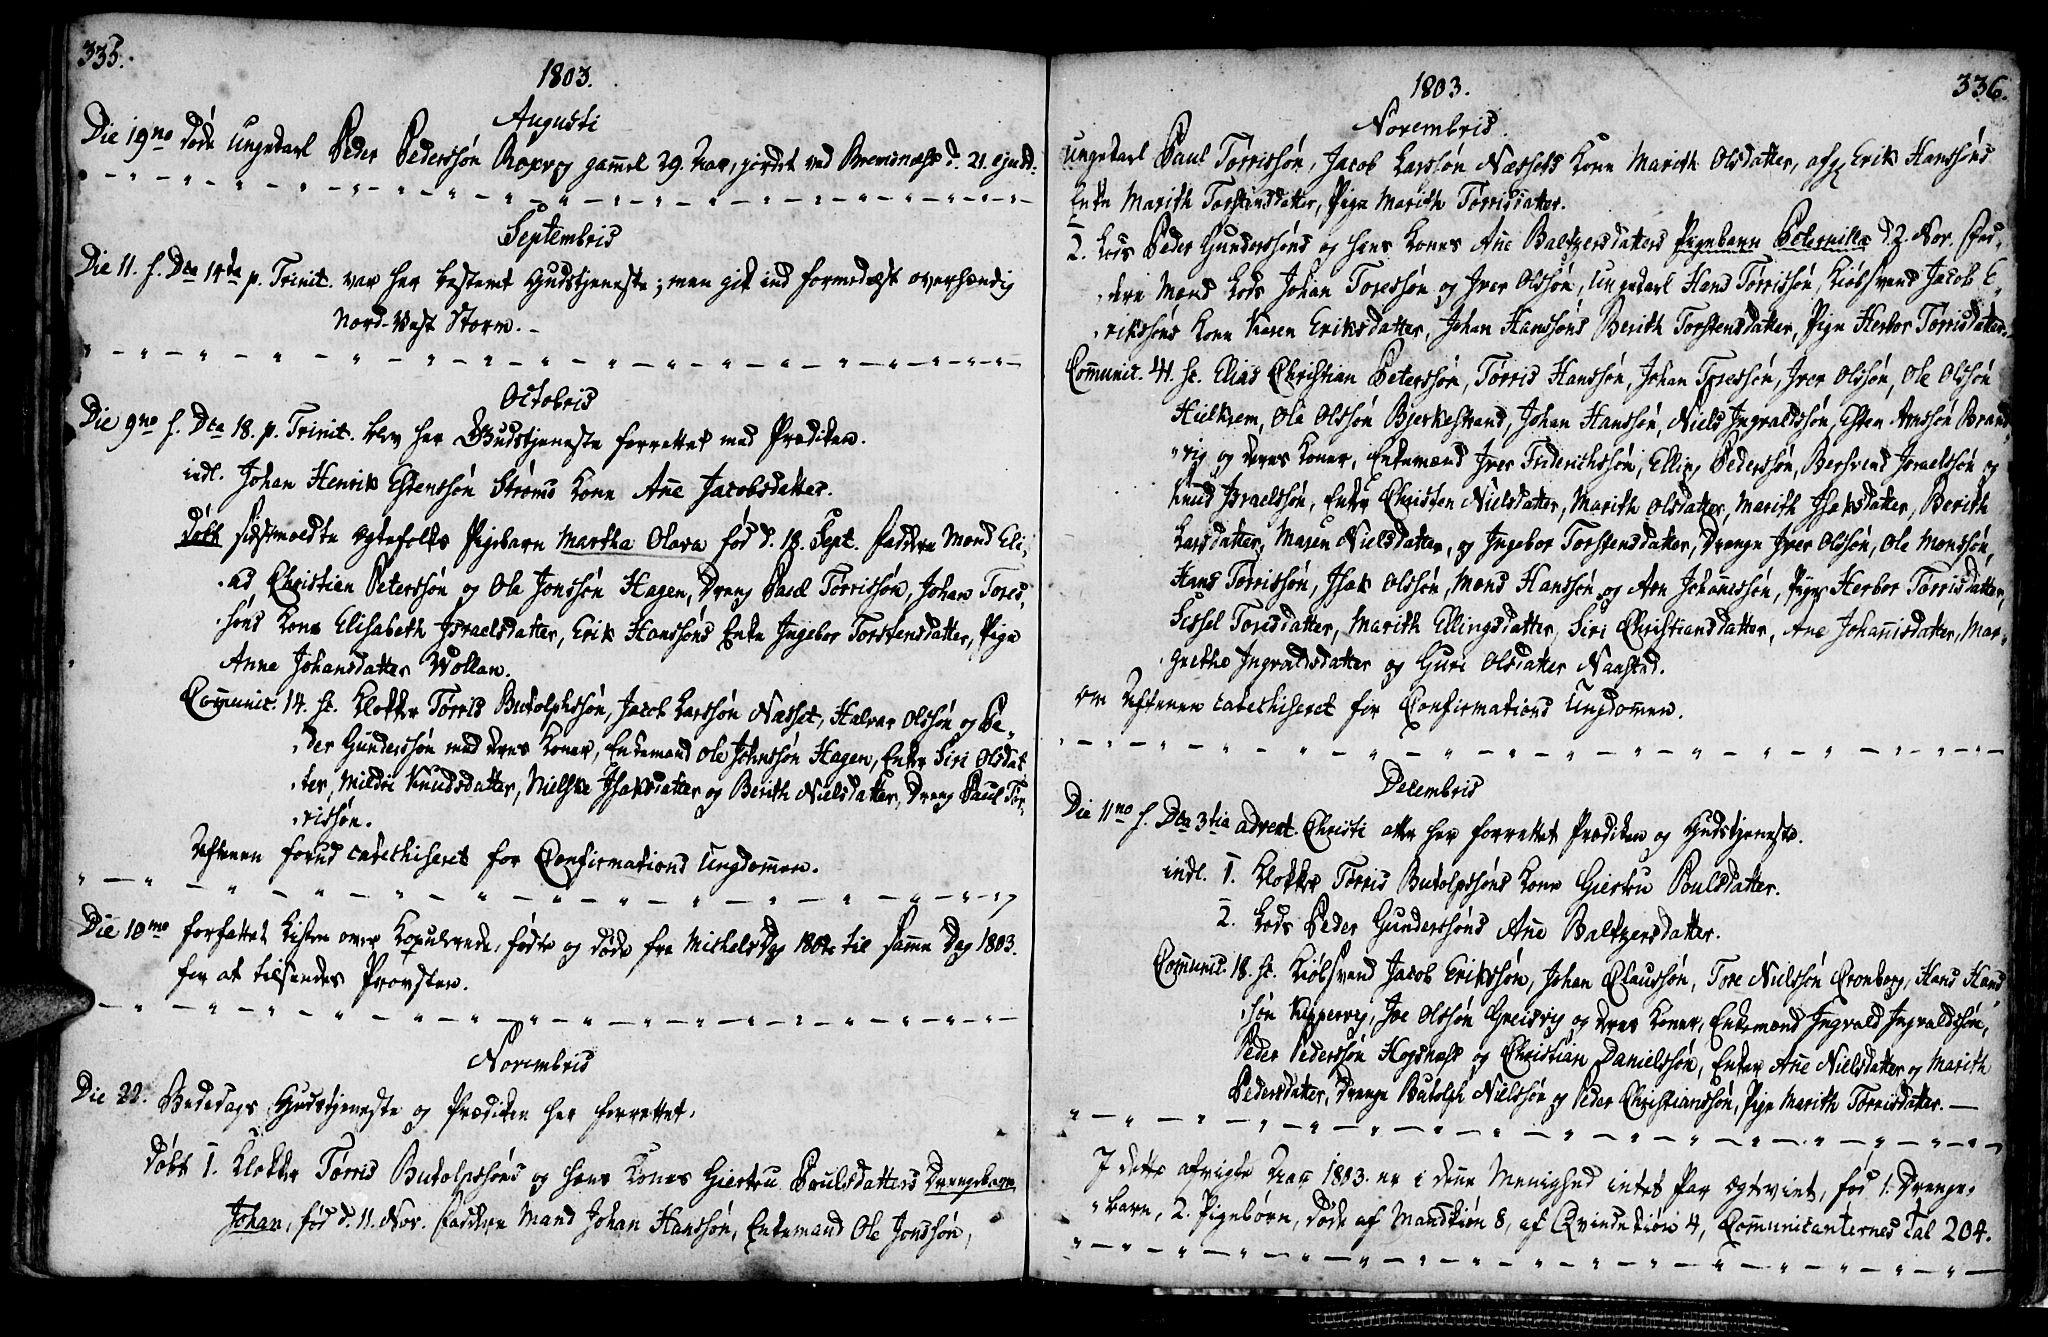 335.
1803.
Augusti
Die 19no døde Ungekarl Peder Pederssøn Ropvog gamel 29. Aar, jordet ved Bremsnæss d. 21. ejusd:
Septembris
Die 11. f. Dca 14da p. Trinit. var her bestemt Gudstjeneste; men gik ind formedelst overhændig
Nord-Vest Storm.
Octobris
Die 9no f. Dca 18. p. Trinit. blev her Gudstjeneste forrettet med Prædiken.
indl. Johan Henrik Estenssøn Strøms Kone Ane Jacobsdatter.
Døbt sidstmeldte Ægtefolks Pigebarn Martha Olava fød d. 18. Sept. Faddere Mend Eli-
as Christian Peterssøn og Ole Jonssøn Hagen, Dreng Paul Tørrissøn, Johan Tores-
søns Kone Elisabeth Israelsdatter, Erik Hanssøns Enke Ingebor Torstensdatter, Pige
Anne Johansdatter Wollan.
Communic. 14. sc. Klokker Tørris Butolphssøn, Jacob Larssøn Næsset, Halvar Olssøn og Pe-
der Gunderssøn med deres Koner, Enkemand Ole Johnssøn Hagen, Enker Siri Olsdat-
ter, Mildri Knudsdatter, Nielske Isaksdatter og Berith Nielsdatter, Dreng Paul Tør-
rissøn.
Aftenen forud catechiseret for Confirmations Ungdommen.
Die 10mo forfattet Listen over Kopulerede, fødte og døde fra Michelsdag 1802 til samme Dag 1803.
for at tilsendes Provsten.
Novembris
Die 22. Bededags Gudstjeneste og Prædiken her forrettet.
Døbt 1. Klokker Tørris Butolpssøns og hans Kones Giertru Poulsdatters Drengebarn
Johan, fød d. 11. Nov. Faddere Mand Johan Hanssøn, Enkemand Ole Jonssøn,
336.
1803.
Novembris.
Ungekarl Paul Tørrissøn, Jacob Larssøn Næssets Kone Marith Olsdatter, afg. Erik Hanssøns
Enke Marith Torstensdatter, Pige Marith Tørrisdatter.
2. Lods Peder Gunderssøns og hans Kones Ane Baltzersdatters Pigebarn Peternilla d. 2. Nov. Fad-
dere Mend Lods Johan Toressøn og Iver Olssøn, Ungekarl Hans Tørrissøn, Kiøbsvend Jacob E-
rikssøns Kone Karen Eriksdatter, Johan Hanssøns Berith Torstensdatter, Pige Herbor Tørrisdatter.
Communic. 41. sc. Elias Christian Peterssøn, Tørris Hanssøn, Johan Toressøn, Iver Olssøn, Ole Olssøn
Hielkrem, Ole Olssøn Bjerkestrand, Johan Hanssøn, Niels Ingvaldssøn, Esten Arnssøn Brand-
vig og deres Koner, Enkemænd Iver Friderichssøn, Elling Pederssøn, Bersvend Israelssøn og
Knud Israelssøn, Enker Christen Nielsdatter, Marith Olsdatter, Marith Isaksdatter, Berith
Larsdatter, Maren Nielsdatter, og Ingebor Torstensdatter, Drenge Iver Olssøn, Ole Monssøn,
Hans Tørrissøn, Isak Olssøn, Mons Hanssøn og Arn Johannissøn, Piger Herbor Tørrisdatter,
Sissel Toresdatter, Marith Ellingsdatter, Siri Christiansdatter, Ane Johannisdatter, Mar-
grethe Ingvaldsdatter og Guri Olsdatter Naastad.
om Aftenen catechiseret for Confirmations Ungdommen.
Decembris
Die 11no f. Dca 3tia advent. Christi atter her forrettet Prædiken og Gudstjeneste.
indl. 1. Klokker Tørris Butolpssøns Kone Giertru Poulsdatter.
2. Lods Peder Gunderssøns Ane Baltzersdatter.
Communic. 18. sc. Kiøbsvend Jacob Erikssøn, Johan Claussøn, Tore Nielssøn Cronborg, Hans Hans-
søn Kippervig, Joe Olssøn Greisvig og deres Koner, Enkemænd Ingvald Ingvaldssøn,
Peder Pederssøn Hogsnæss og Christian Danielssøn, Enker Ane Nielsdatter og Marith
Pedersdatter, Drenge Butolph Nielssøn og Peder Christianssøn, Pige Marith Tørrisdatter.
I dette afvigte Aar 1803. er i denne Menighed intet Par ægteviet, fød 1. Drenge-
barn, 2. Pigebørn, døde af Mandkiøn 8, af Qvindekiøn 4, Communicanternes Tal 204.